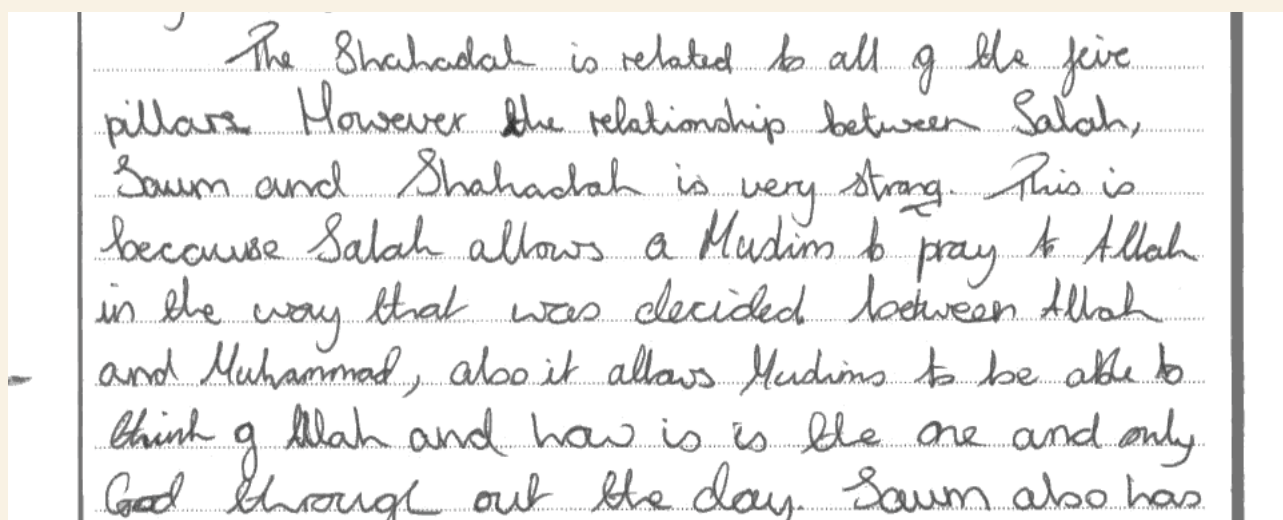 The Shahadah is related to all of the five
pillars. However the relationship between Salah,
Sawm and Shahadah is very strong. This is
because Salah allows a Muslim to pray to Allah
in the way that was decided between Allah
and Muhammad, also it allows Muslims to be able to
think of Allah and how is is the one and only
God through out the day. Sawm also has